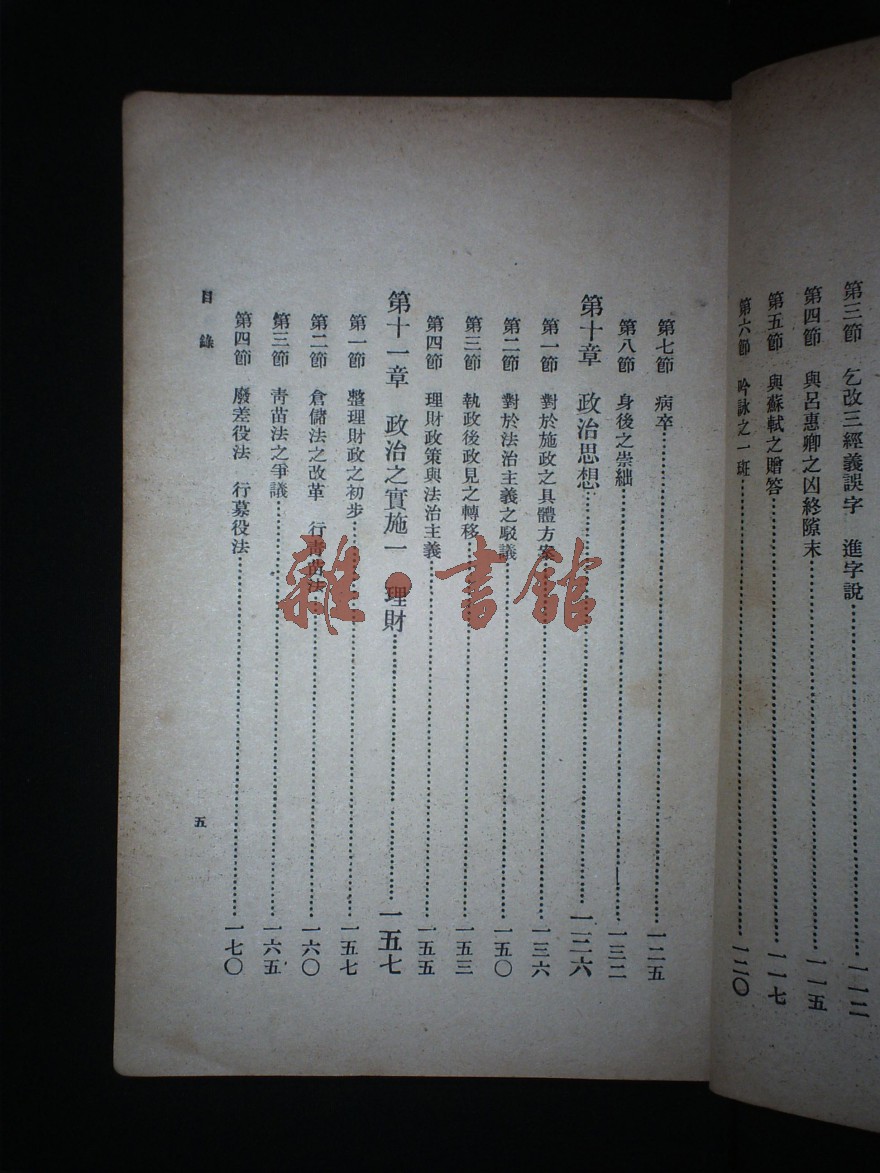 第三節　乞改三經義誤字　進字說…………一一二
第四節　與呂惠卿之凶終隙末…………一一五
第五節　與蘇軾之贈答…………一一七
第六節　吟詠之一斑…………一二〇
第七節　病卒…………一二五
第八節　身後之崇絀…………一三二
第十章　政治思想…………一二六
第一節　對於施政之具體方案…………一三六
第二節　對於法治主義之駁議…………一五〇
第三節　執政後政見之轉移…………一五三
第四節　理財政策與法治主義…………一五五
第十一章　政治之實施一　理財…………一五七
第一節　整理財政之初步…………一五七
第二節　倉儲法之改革　行靑苗法…………一六〇
第三節　靑苗法之爭議…………一六五
第四節　廢差役法　行募役法…………一七〇
目錄
五
雜·書館